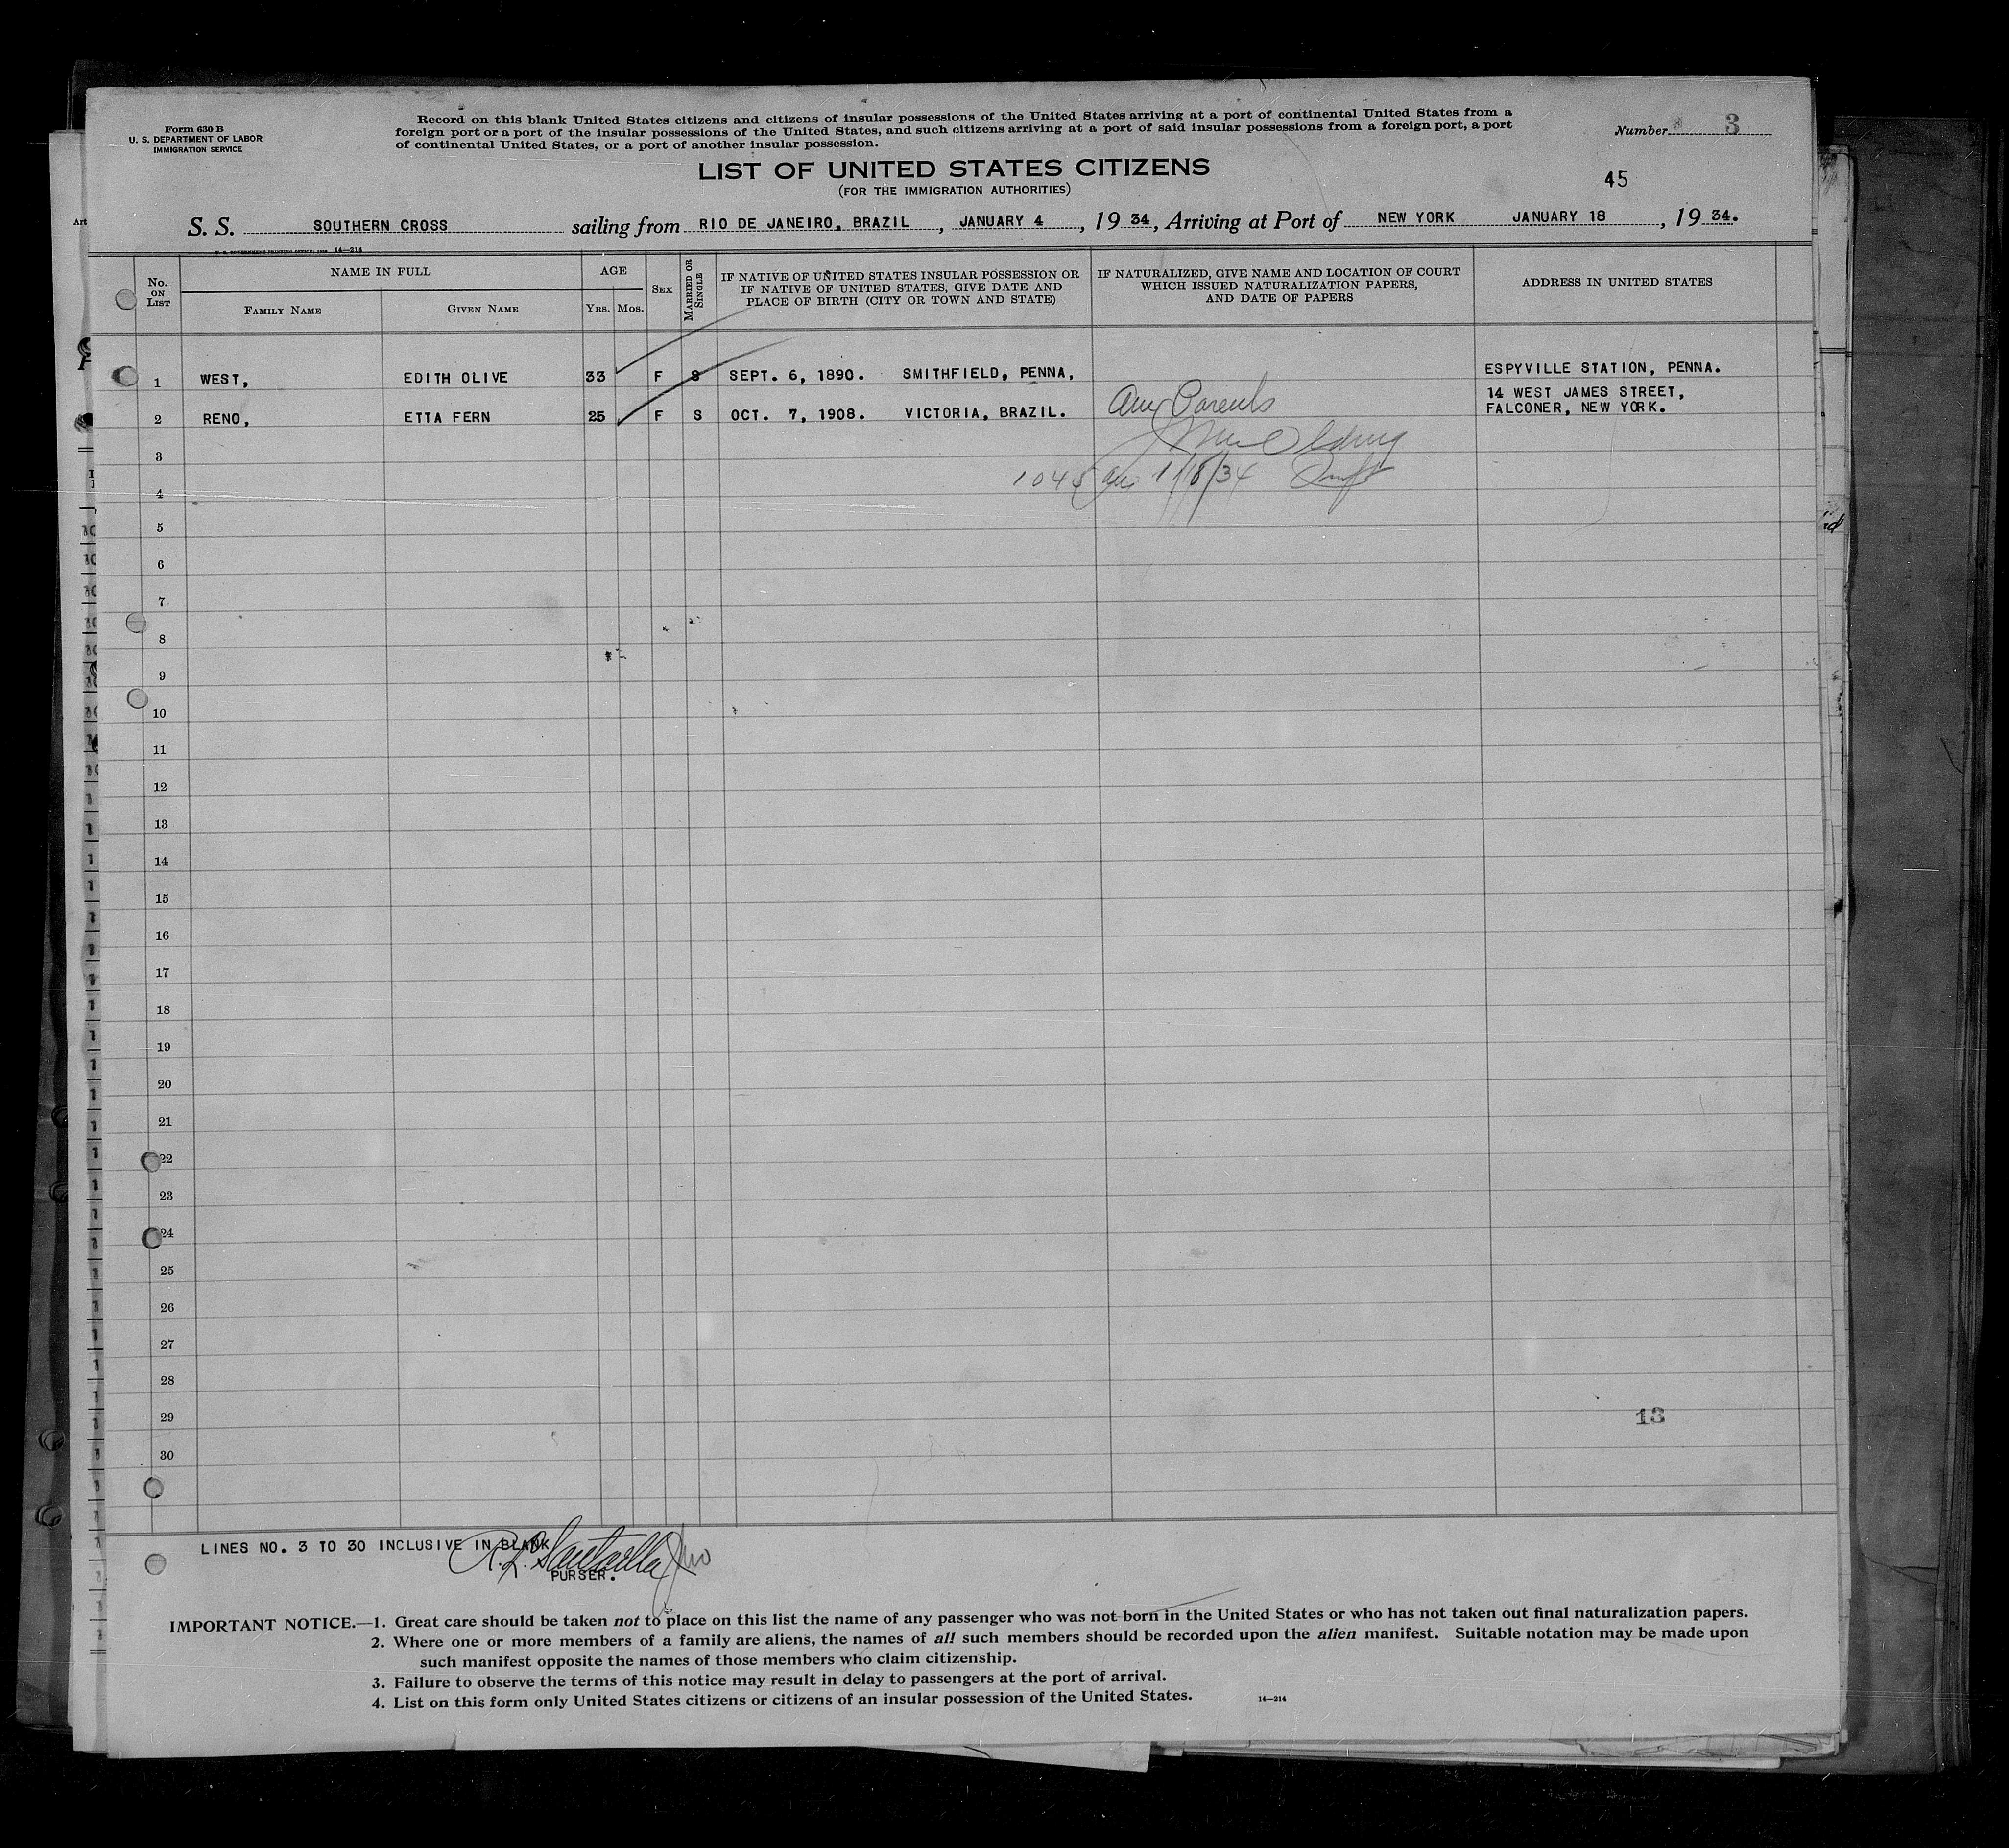 Form 630 B
U. S. DEPARTMENT OF LABOR
IMMIGRATION SERVICE
Record on this blank United States citizens and citizens of insular possessions of the United States arriving at a port of continental United States from a
foreign port or a port of the insular possessions of the United States, and such citizens arriving at a port of said insular possessions from a foreign port, a port
of continental United States, or a port of another insular possession.
Number 3
LIST OF UNITED STATES CITIZENS
(FOR THE IMMIGRATION AUTHORITIES)
45
S. S. SOUTHERN CROSS sailing from RIO DE JANEIRO, BRAZIL, JANUARY 4, 19 34, Arriving at Port of NEW YORK JANUARY 18, 19 34.
14—214
No. ON LIST
NAME IN FULL
FAMILY NAME
GIVEN NAME
AGE
YRS. MOS.
SEX
MARRIED OR SINGLE
IF NATIVE OF UNITED STATES INSULAR POSSESSION OR
IF NATIVE OF UNITED STATES, GIVE DATE AND
PLACE OF BIRTH (CITY OR TOWN AND STATE)
IF NATURALIZED, GIVE NAME AND LOCATION OF COURT
WHICH ISSUED NATURALIZATION PAPERS,
AND DATE OF PAPERS
ADDRESS IN UNITED STATES
1 WEST, EDITH OLIVE 33 F S SEPT. 6, 1890. SMITHFIELD, PENNA, ESPYVILLE STATION, PENNA.
2 RENO, ETTA FERN 25 F S OCT. 7, 1908. VICTORIA, BRAZIL. Am Parents 14 WEST JAMES STREET,
FALCONER, NEW YORK.
3
4 1045 am 1/18/34
5
6
7
8
9
10
11
12
13
14
15
16
17
18
19
20
21
22
23
24
25
26
27
28
29 13
30
LINES NO. 3 TO 30 INCLUSIVE IN BLANK
PURSER.
IMPORTANT NOTICE.—1. Great care should be taken not to place on this list the name of any passenger who was not born in the United States or who has not taken out final naturalization papers.
2. Where one or more members of a family are aliens, the names of all such members should be recorded upon the alien manifest. Suitable notation may be made upon
such manifest opposite the names of those members who claim citizenship.
3. Failure to observe the terms of this notice may result in delay to passengers at the port of arrival.
4. List on this form only United States citizens or citizens of an insular possession of the United States. 14—214